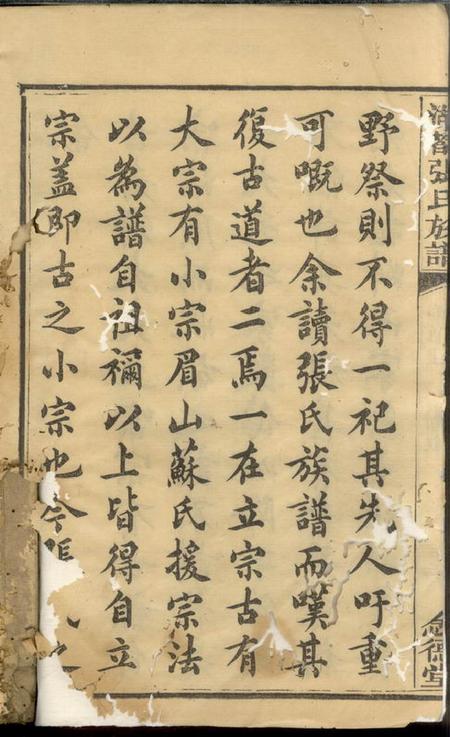 張氏族譜
德堂
野祭則不得一祀其先人吁重
可嘅也余讀張氏族譜而嘆其
復古道者二焉一在立宗古有
大宗有小宗眉山蘇氏援宗法
以為譜自祖禰以上皆得自立
宗蓋即古之小宗也今